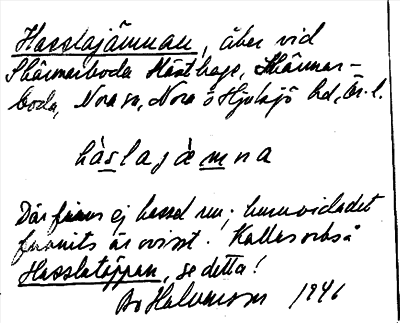 Hasslajämnan, åker vid
Skärmarboda Hästhage, Skärmar-
boda, Nora sn, Nora o Hjulsjö hd, Ör. l.
hàslajæmna
Där finns ej hassel nu; huruvida det
funnits är ovisst. Kallas också
Hasslatäppan, se detta!
Bo Halvarsson 1946